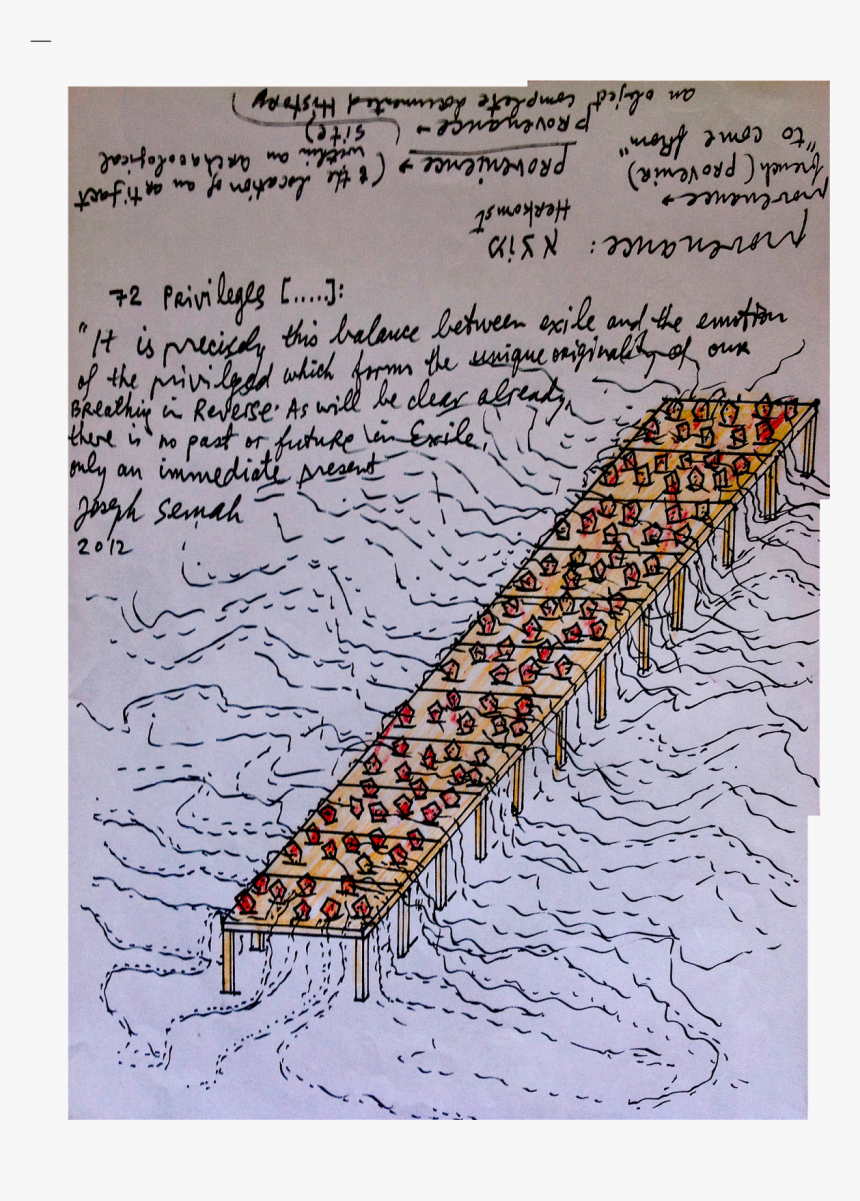 provenance: מוצא
Herkomst
provenance →
french (provenir)
"to come from"
provenience → (the location of an artifact
within an archaeological
site)
provenance →
an object complete documented History)
72 Privileges [.....]:
"It is precisely this balance between exile and the emotion
of the privileged which forms the unique originality of our
Breathing in Reverse. As will be clear already,
there is no past or future in Exile,
only an immediate present
Joseph Semah
2012